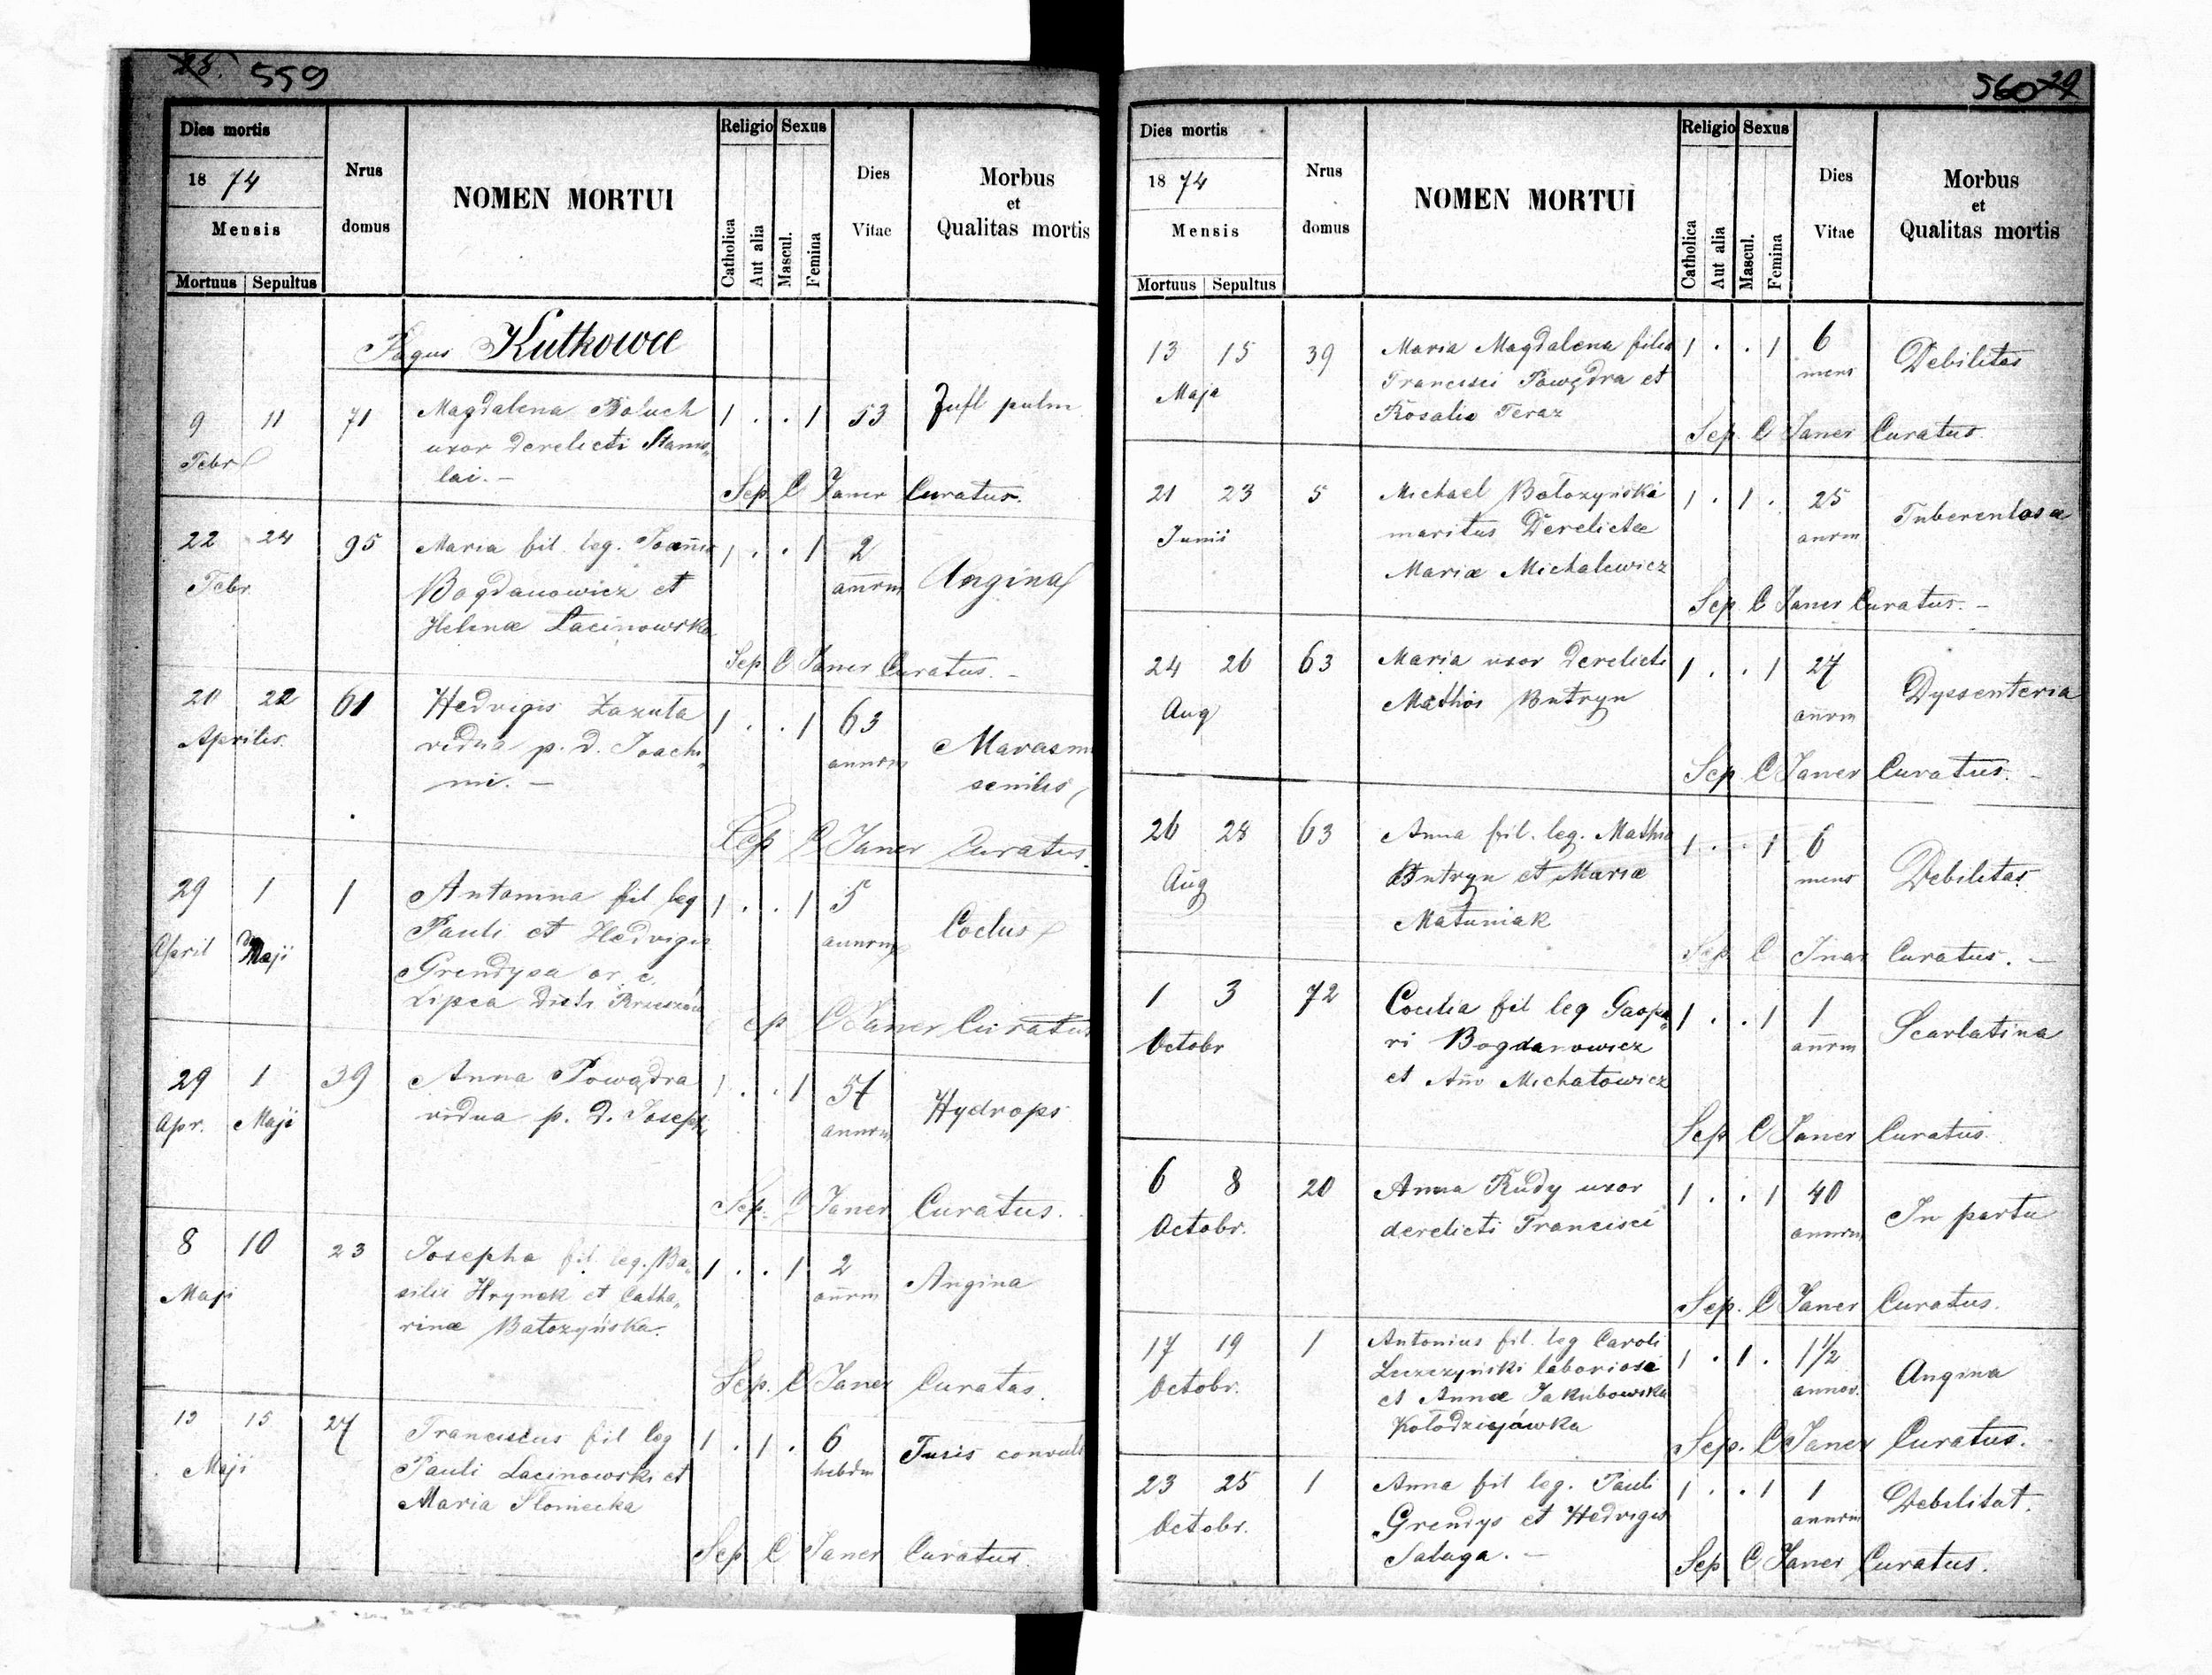 28. 559
Dies mortis
1874
Mensis
Mortuus Sepultus
Nrus domus
NOMEN MORTUI
Religio
Catholica
Aut alia
Sexus
Mascul.
Femina
Dies Vitae
Morbus
et
Qualitas mortis
Pagus Kutkowce
9 11 71 Magdalena Boluch 1 . . 1 53 Infl pulm
Febr uxor derelicti Stanis„
lai. –
Sep. C Janer Curatus.
22 24 95 Maria fil. leg. Joannis 1 . . 1 2 Angina
Febr Bogdanowicz et annrm
Helenæ Łacinowska
Sep. C Janer Curatus. –
20 22 61 Hedvigis Zazula 1 . . 1 63 Marasm
Aprilis. vidua p. d. Joachi„ annrm senilis
mi. –
Sep C Janer Curatus.
29 1 1 Antonina fil leg 1 . . 1 5
April Maji Pauli et Hedvigis annrm
Grendysa or. e.
Lipca distr Rzeszów
Sep C Janer Curatus
29 1 39 Anna Powądra 1 . . 1 57 Hydrops
Apr. Maji vidua p. d. Josephi annrm
Sep. C Janer Curatus.
8 10 23 Josepha fil leg. Ba„ 1 . . 1 2 Angina
Maji silii Hrynek et Catha„ annrm
rinæ Batozyńska.
Sep. C Janer Curatus.
13 15 27 Franciscus fil leg 1 . 1 . 6 Tusis convuls
Maji Pauli Łacinowski et hebdm
Maria Słoniecka
Sep C Janer Curatus.
560 29
Dies mortis
1874
Mensis
Mortuus Sepultus
Nrus domus
NOMEN MORTUI
Religio
Catholica
Aut alia
Sexus
Mascul.
Femina
Dies Vitae
Morbus
et
Qualitas mortis
13 15 39 Maria Magdalena filia 1 . . 1 6 Debilitas
Maja Francisci Powądra et mens
Rosalia Teraz
Sep. C Janer Curatus.
21 23 5 Michael Batozyński 1 . 1 . 25 Tuberculosæ
Junii maritus Derelictæ annrm
Mariæ Michalewicz
Sep. C Janer Curatus. –
24 26 63 Maria uxor derelicti 1 . . 1 27 Dyssenteria
Aug Mathiæ Butryn annrm
Sep C Janer Curatus. –
26 28 63 Anna fil. leg. Mathiæ 1 . . 1 6 Debilitas.
Aug Butryn et Mariæ mens
Matuniak
Sep C Curatus. –
1 3 72 Cœcilia fil leg Gaspa„ 1 . . 1 1 Scarlatina
Octobr ri Bogdanowicz annrm
et Michałowicz
Sep C Janer Curatus.
6 8 20 Anna Rudy uxor 1 . . 1 40 In partu
Octobr. derelicti Francisci annrm
Sep. C Janer Curatus.
17 19 1 Antonius fil. leg Caroli 1 . 1 . 1 1/2 Angina
Octobr. Leszczyński laboriosi annor.
et Annæ Jakubowska
Kołodziejówka
Sep. C Janer Curatus.
23 25 1 Anna fil leg. Pauli 1 . . 1 1 Debilitat.
Octobr. Grendys et Hedvigis annrm
Saługa. –
Sep C Janer Curatus.